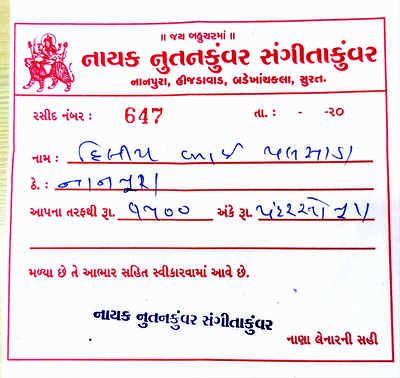 ॥ જય બહુચરમાં ॥
નાયક નુતનકુંવર સંગીતાકુંવર
નાનપુરા, હીજડાવાડ, બડેખાંચકલા, સુરત.
રસીદ નંબર : 647 તા. : - -૨૦
નામ : દિલીપ ભાઈ
ઠે. : નાનપુરા
આપના તરફથી રૂા. ૧૫૦૦ અંકે રૂા. પંદરસો રૂપા
મળ્યા છે તે આભાર સહિત સ્વીકારવામાં આવે છે.
નાયક નુતનકુંવર સંગીતાકુંવર
નાણા લેનારની સહી